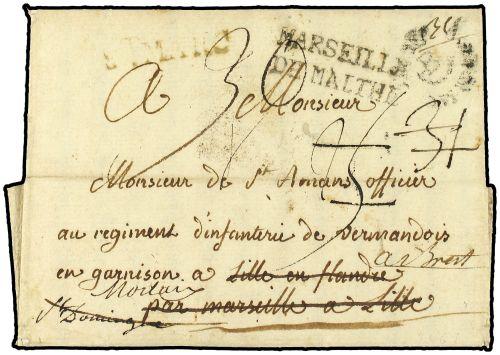 MARSEILLE
DE MALTHE
34
A 30
Monsieur
34
Monsieur de St Amans officier
au regiment d'infanterie de vermandois
en garnison a Lille en flandre
a Brest
par marseille a Lille
St Domingue